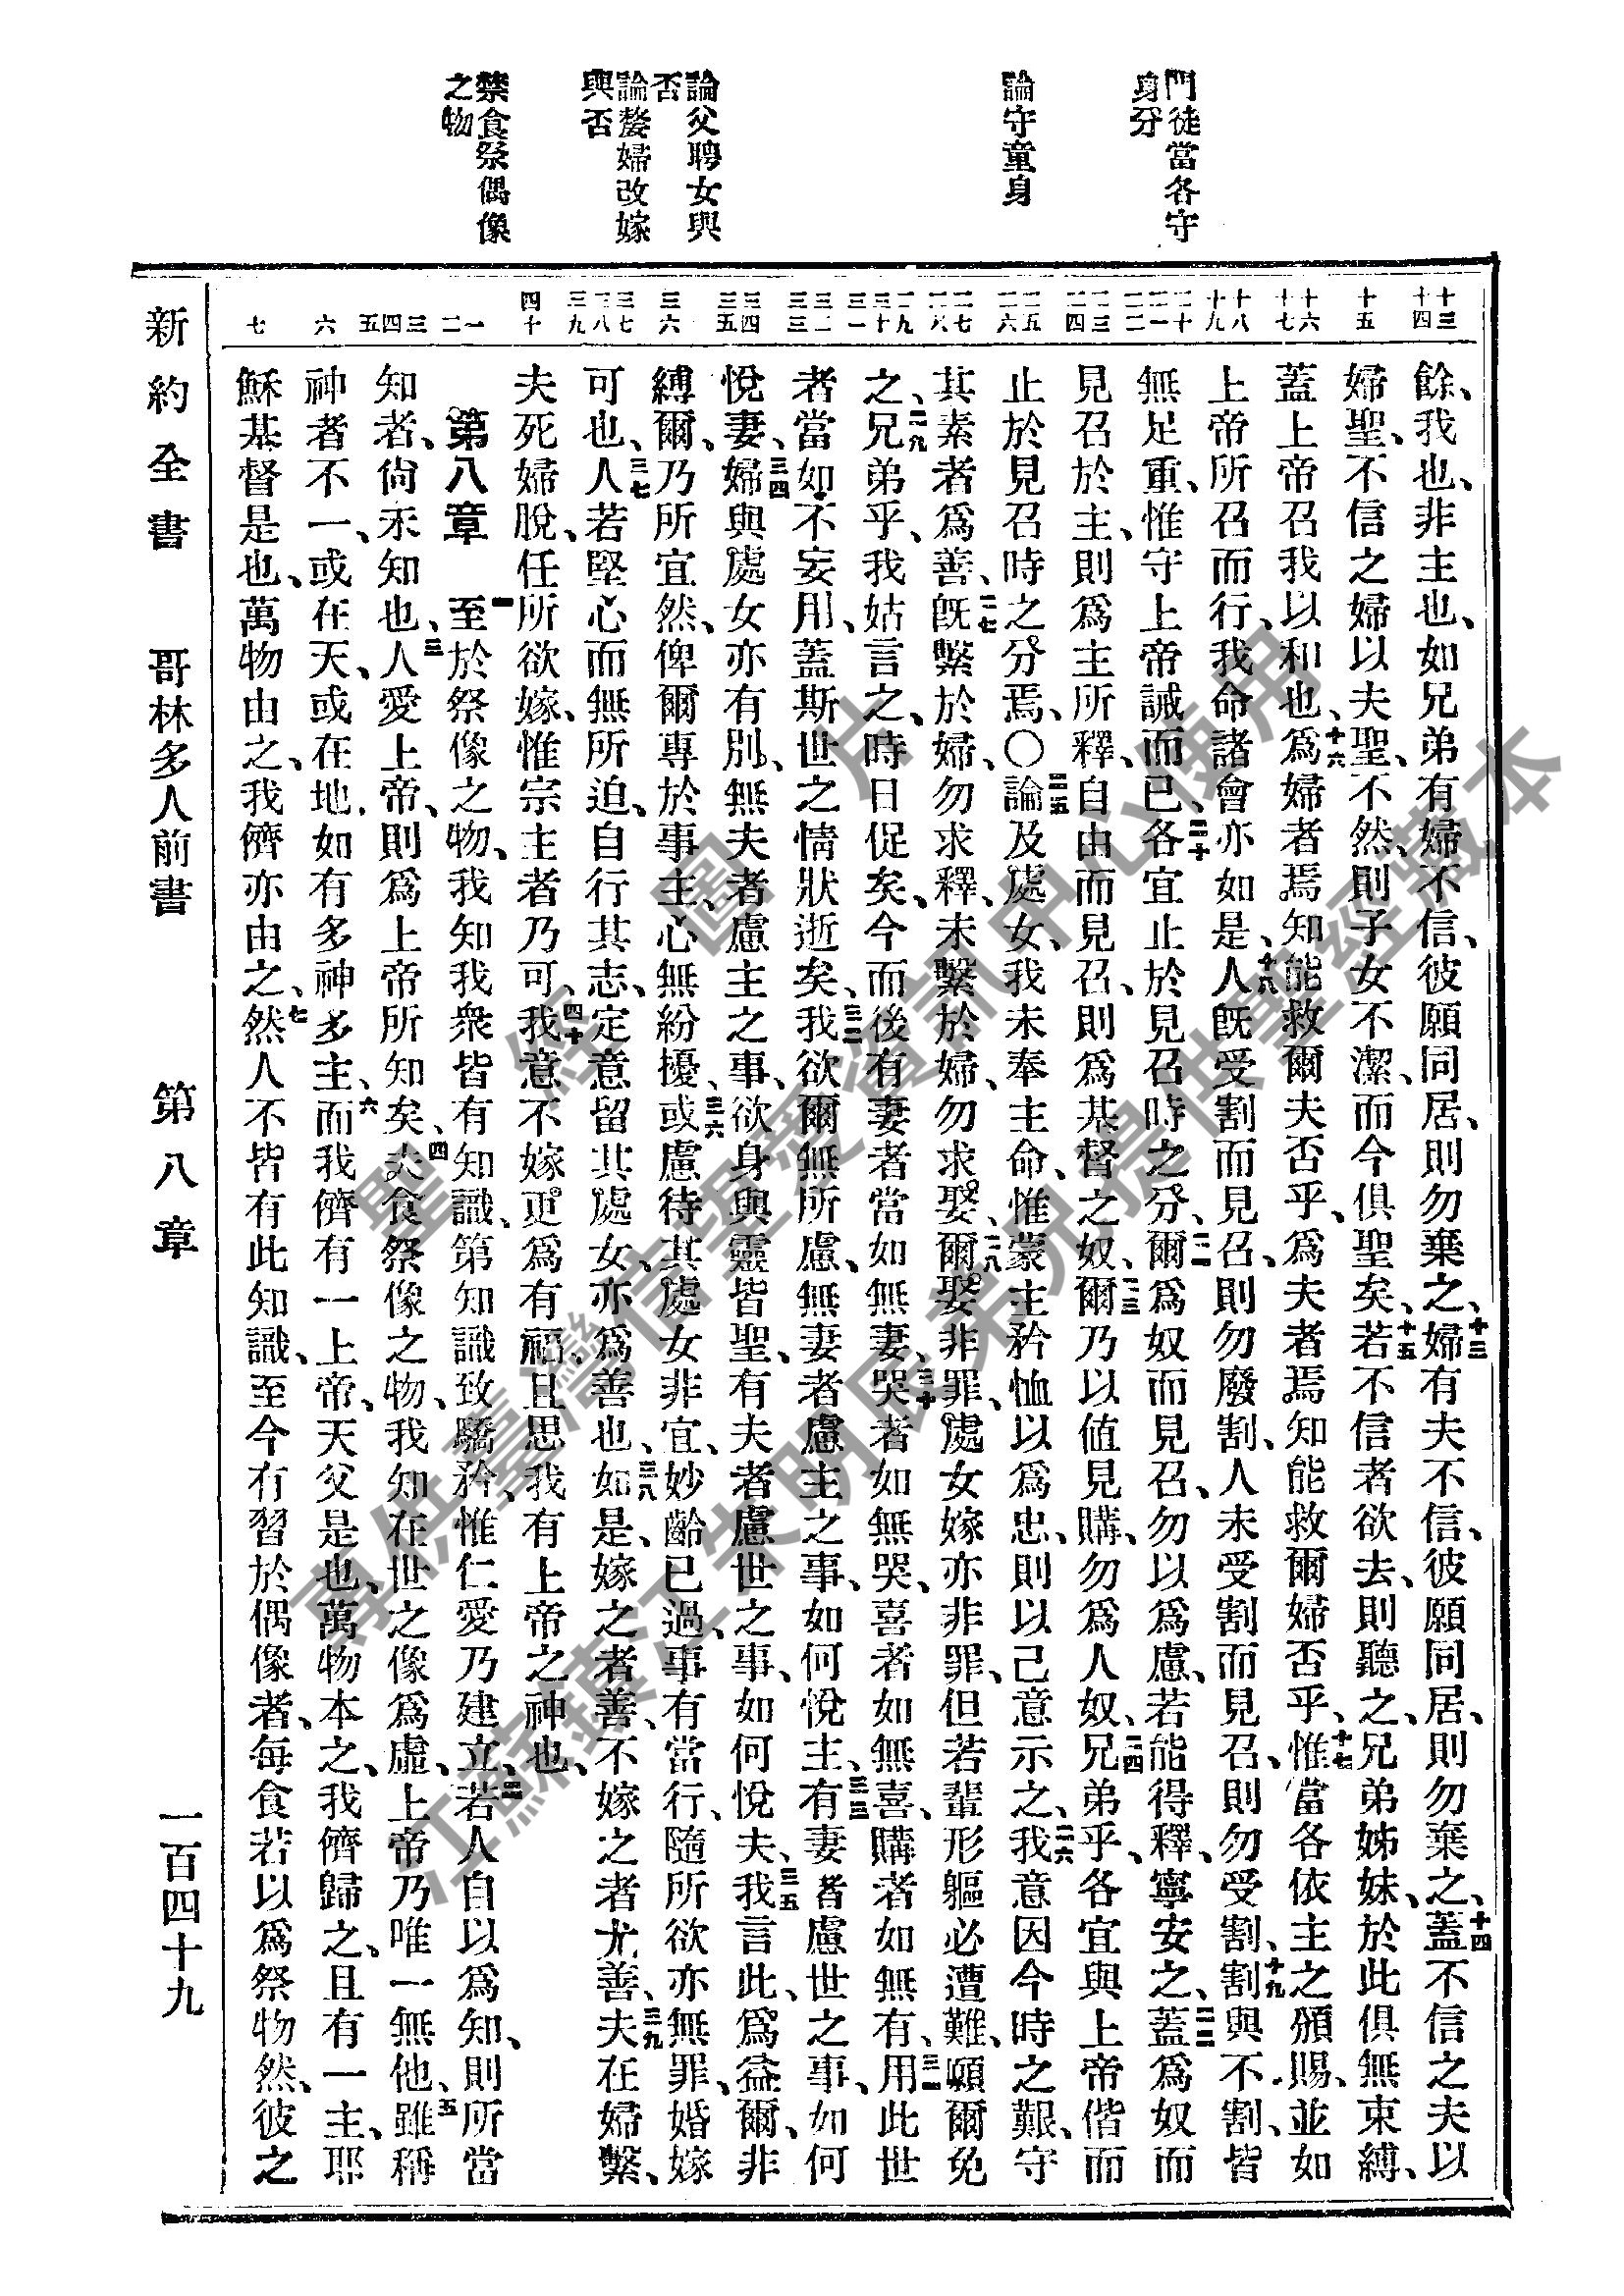 門徒當各守
身分
論守童身
論父聘女與
否
論嫠婦改嫁
與否
禁食祭偶像
之物
十三 十四 十五 十六 十七 十八 十九 二十 二一 二二 二三 二四 二五 二六 二七 二八 二九 三十 三一 三二 三三 三四 三五 三六 三七 三八 三九 四十 一 二 三 四 五 六 七
餘、我也、非主也、如兄弟有婦不信、彼願同居、則勿棄之、十三婦有夫不信、彼願同居、則勿棄之、十四蓋不信之夫以
婦聖、不信之婦以夫聖、不然、則子女不潔、而今俱聖矣、十五若不信者欲去、則聽之、兄弟姊妹、於此俱無束縛、
蓋上帝召我以和也、十六爲婦者焉知能救爾夫否乎、爲夫者焉知能救爾婦否乎、十七惟當各依主之頒賜、並如
上帝所召而行、我命諸會亦如是、十八人旣受割而見召、則勿廢割、人未受割而見召、則勿受割、十九割與不割、皆
無足重、惟守上帝誡而已、二十各宜止於見召時之分、二一爾爲奴而見召、勿以爲慮、若能得釋、寧安之、二二蓋爲奴而
見召於主、則爲主所釋、自由而見召、則爲基督之奴、二三爾乃以値見購、勿爲人奴、二四兄弟乎、各宜與上帝偕而
止於見召時之分焉、〇二五論及處女、我未奉主命、惟蒙主矜恤以爲忠、則以己意示之、二六我意因今時之艱、守
其素者爲善、二七旣繫於婦、勿求釋、未繫於婦、勿求娶、二八爾娶非罪、處女嫁亦非罪、但若輩形軀必遭難、願爾免
之、二九兄弟乎、我姑言之、時日促矣、今而後有妻者當如無妻、三十哭者如無哭、喜者如無喜、購者如無有、三一用此世
者當如不妄用、蓋斯世之情狀逝矣、三二我欲爾無所慮、無妻者慮主之事、如何悅主、三三有妻者慮世之事、如何
悅妻、三四婦與處女亦有別、無夫者慮主之事、欲身與靈皆聖、有夫者慮世之事、如何悅夫、三五我言此、爲益爾、非
縛爾、乃所宜然、俾爾專於事主、心無紛擾、三六或慮待其處女非宜、妙齡已過、事有當行、隨所欲亦無罪、婚嫁
可也、三七人若堅心而無所迫、自行其志、定意留其處女、亦爲善也、三八如是、嫁之者善、不嫁之者尤善、三九夫在婦繫、
夫死婦脫、任所欲嫁、惟宗主者乃可、四十我意不嫁更爲有福、且思我有上帝之神也、
第八章 一至於祭像之物、我知我衆皆有知識、第知識致驕矜、惟仁愛乃建立、二若人自以爲知、則所當
知者、尙未知也、三人愛上帝、則爲上帝所知矣、四夫食祭像之物、我知在世之像爲虛、上帝乃唯一無他、五雖稱
神者不一、或在天、或在地、如有多神多主、六而我儕有一上帝、天父是也、萬物本之、我儕歸之、且有一主、耶
穌基督是也、萬物由之、我儕亦由之、七然人不皆有此知識、至今有習於偶像者、每食若以爲祭物然、彼之
新約全書 哥林多人前書 第八章 一百四十九
聖經圖片
專供臺灣信望愛資訊中心使用
江蘇鎮江朱明辰弟兄提供聖經藏本